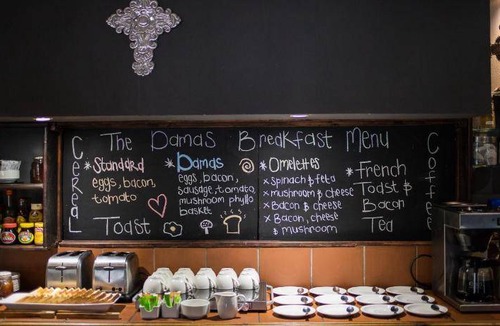 The Damas Breakfast Menu
Cereal
* Standard
eggs, bacon,
tomato
Toast
* Damas
eggs, bacon,
sausage, tomato,
mushroom phyllo
basket
* Omelettes
x Spinach & feta
x mushroom & cheese
x Bacon & cheese
x Bacon, cheese
& mushroom
* French
Toast &
Bacon
Tea
Coffee